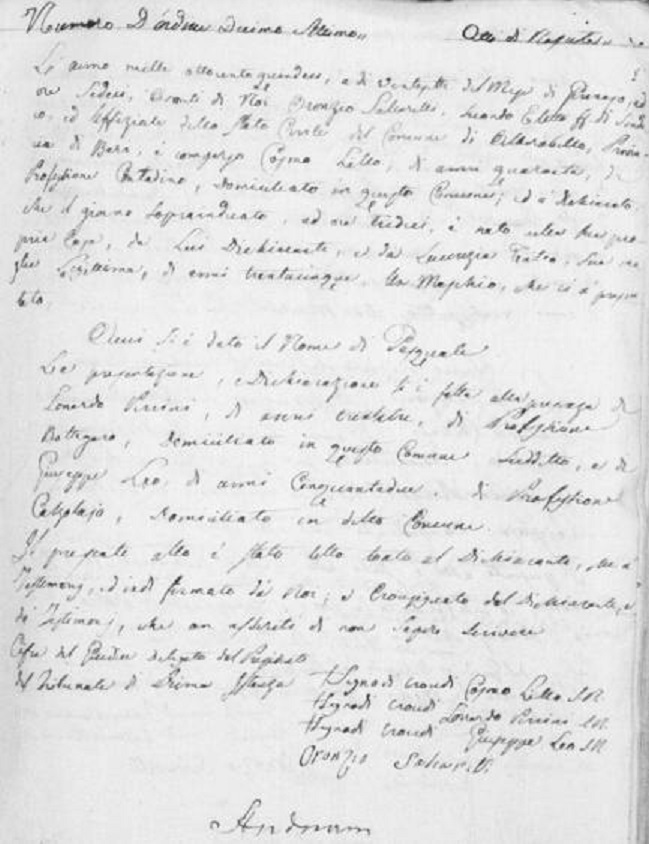 Numero D'ordine Decimo Settimo Atto di Nascita
L'anno mille ottocento quindeci, a di ventisette del Mese di Gennajo, ad
ore Sedeci, avanti di Noi Oronzio Secondo Eletto ff. di Sinda
co, ed Uffiziale dello Stato Civile del Comune di Alberobello, Provin-
cia di Bari, è comparso Cosmo Lello, di anni quaranta, di
Professione Contadino, domiciliato in questo Comune; ed à dichiarato,
che il giorno sopraindicato, ad ore tredici, è nato nella sua pro-
pria Casa, da Lui Dichiarante, e da Lucrezia sua mo
glie Legittima, di anni trentacinque, Un Maschio, che ci à presen
tato,
A cui si è dato il Nome di Pasquale
La presentazione, e dichiarazione si è fatta alla presenza di
Lonardo Piccini, di anni trentatre, di Professione
Bottegaro, domiciliato in questo Comune suddetto, e di
Giuseppe Leo, di anni Cinquantadue di Professione
Calzolajo, domiciliato in detto Comune.
Il presente atto è stato letto tanto al dichiarante, che a'
Testimonj, ed indi firmato da Noi; e Crocesignato dal dichiarante, e
da' Testimonj, che an asserito di non sapere scrivere
Cifra del Giudice delegato dal Presidente
del Tribunale di Prima Istanza
† Signo di croce di Cosmo Lello
† Signo di croce di Lonardo Piccini
† Signo di croce di Giuseppe Leo
Oronzio